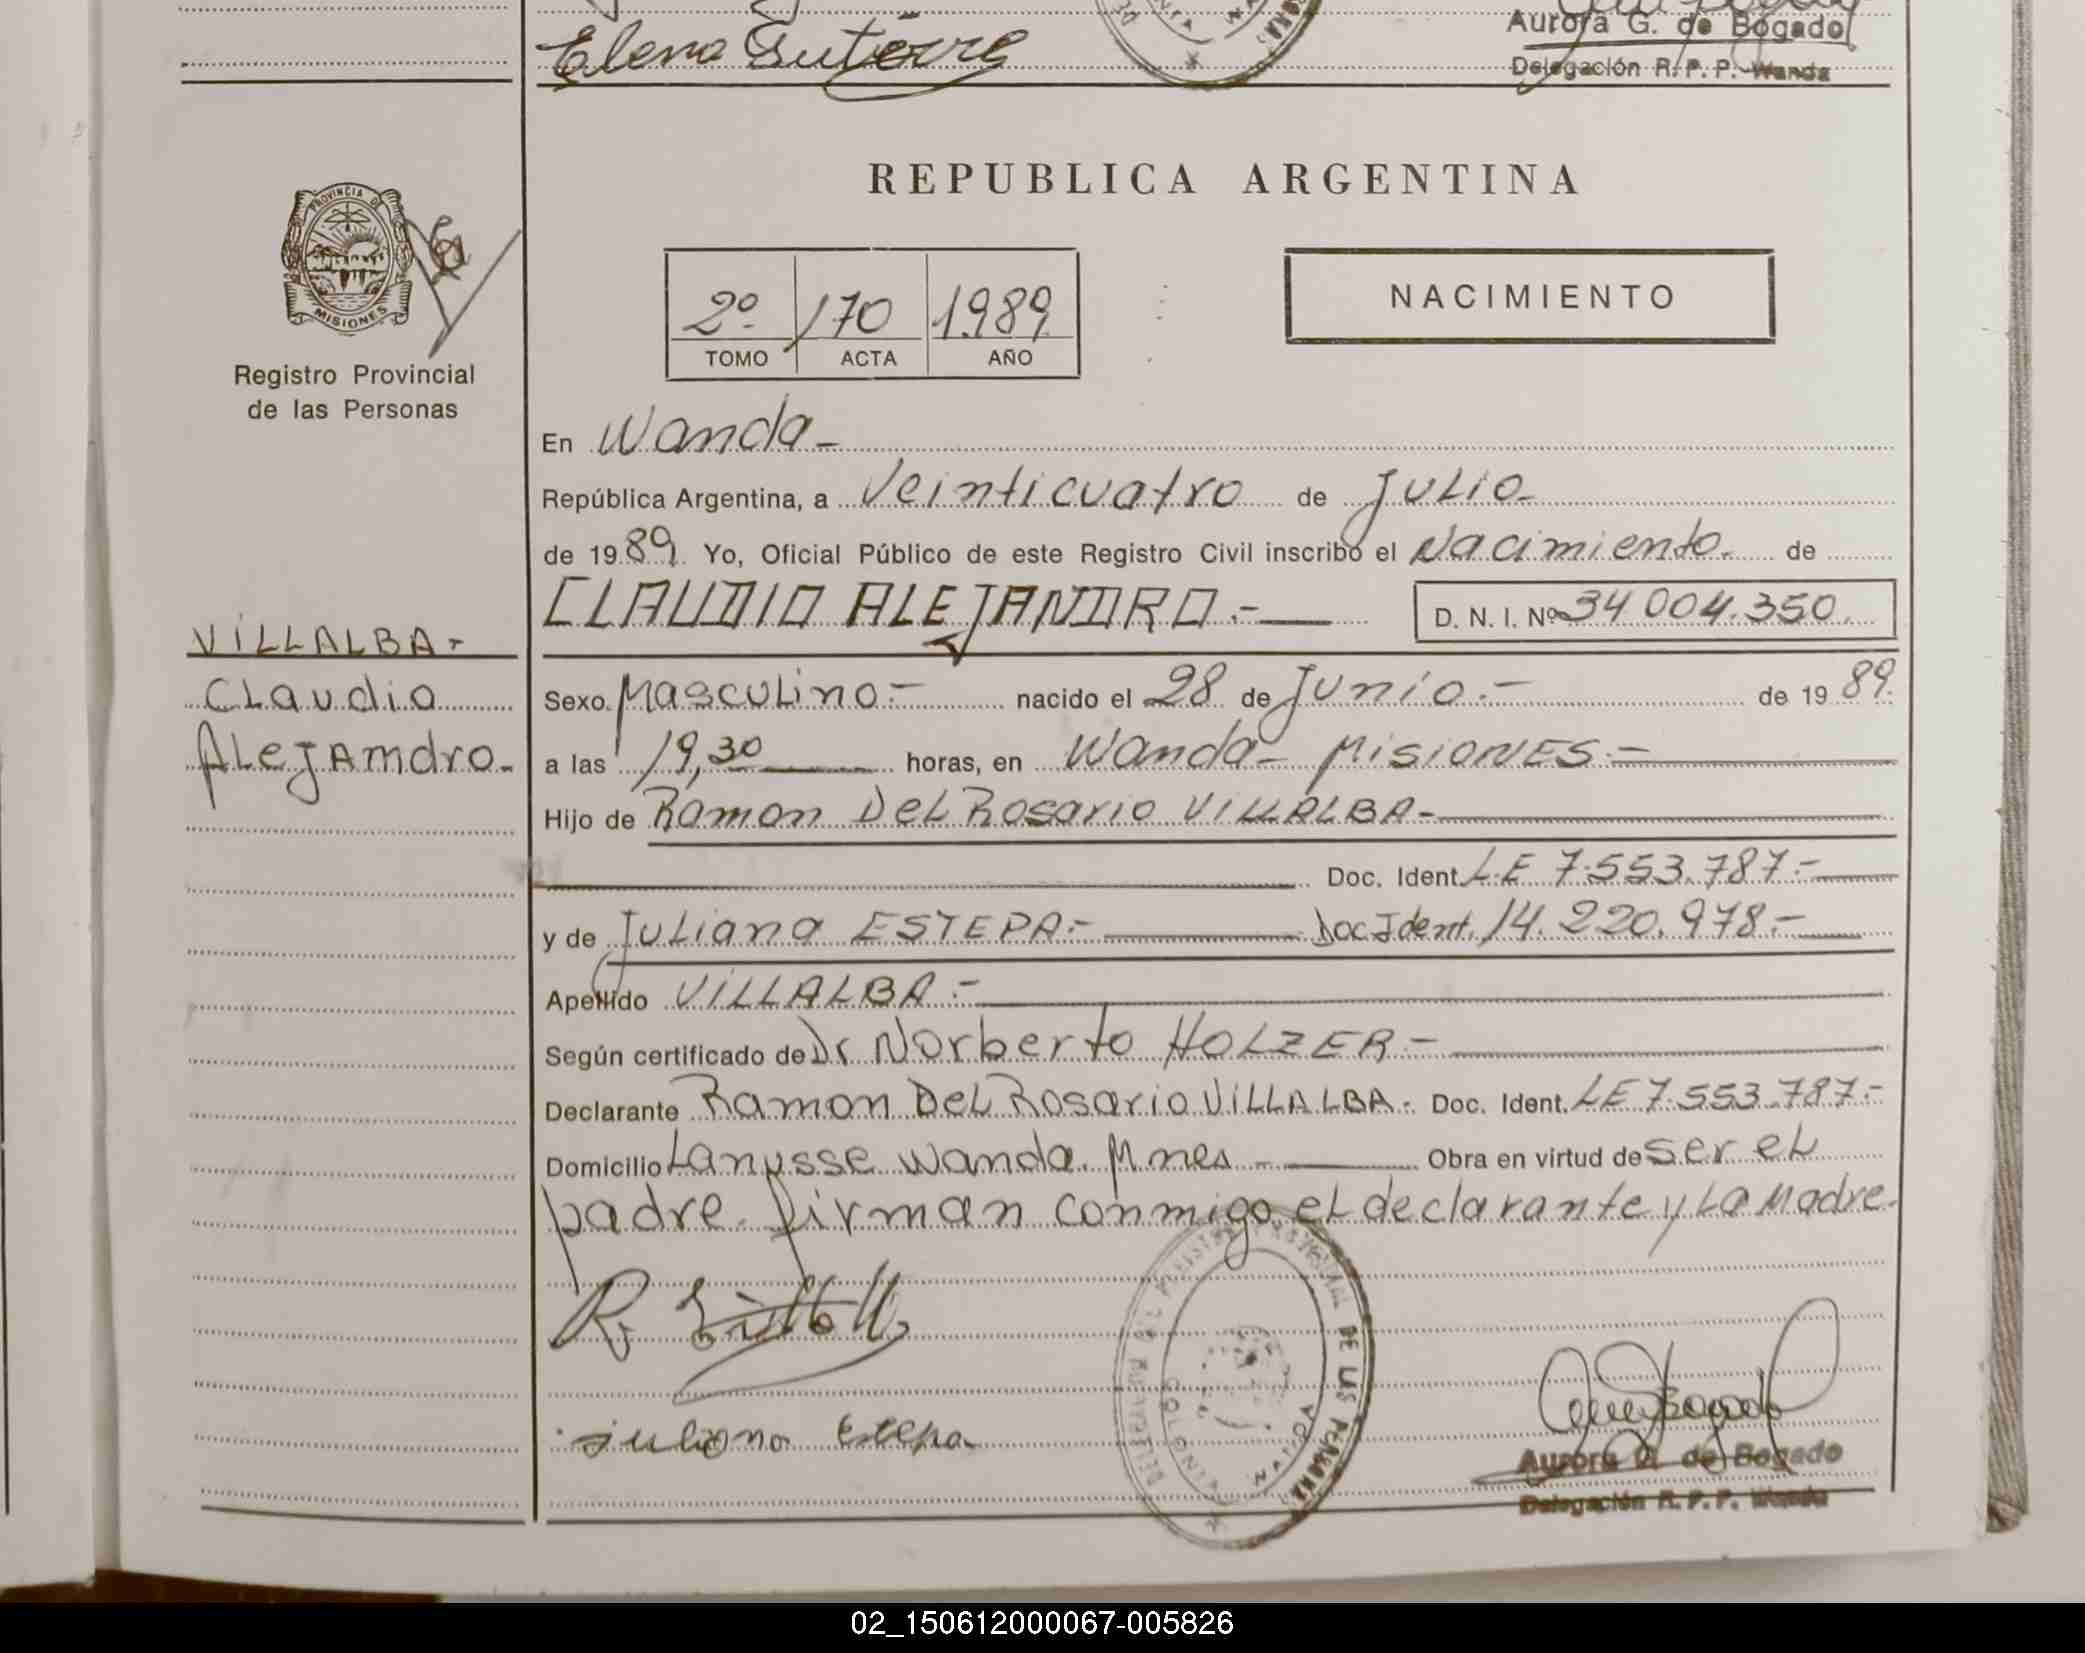 Elena Gutierre
Aurora G. de Bogado
Delegación R. P. P. Wanda
REPUBLICA ARGENTINA
PROVINCIA DE
MISIONES
Registro Provincial
de las Personas
2º 170 1989
TOMO ACTA AÑO
NACIMIENTO
En Wanda-
República Argentina, a Veinticuatro de Julio-
de 1989. Yo, Oficial Público de este Registro Civil inscribo el Nacimiento. de
CLAUDIO ALEJANDRO.- D. N. I. Nº 34004.350.
VILLALBA-
Claudio
Alejamdro.
Sexo Masculino.- nacido el 28 de Junio.- de 1989.
a las 19,30 horas, en Wanda- MISIONES.-
Hijo de Ramon Del Rosario VILLALBA-
Doc. Ident. L.E 7.553.787.-
y de Juliana ESTEPA.- Doc Ident. 14.220.978.-
Apellido VILLALBA.-
Según certificado de Dr Norberto HOLZER-
Declarante Ramon Del Rosario VILLALBA. Doc. Ident. LE 7.553.787.-
Domicilio Lanusse Wanda. Mnes - Obra en virtud de ser el
padre. Firman conmigo, el declarante y la Madre.
juliana Estepa
DE LAS PERSONAS
Aurora G. de Bogado
Delegación R. P. P. Wanda
02_150612000067-005826